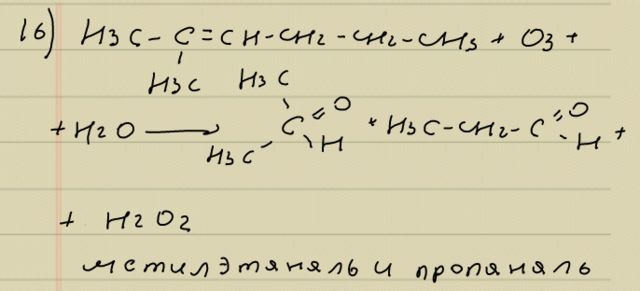 16) H3C-C=CH-CH2-CH2-CH3 + O3 +
H3C H3C
+ H2O → C=O H H3C + H3C-CH2-C=O H +
+ H2O2
метилэтаналь и пропаналь